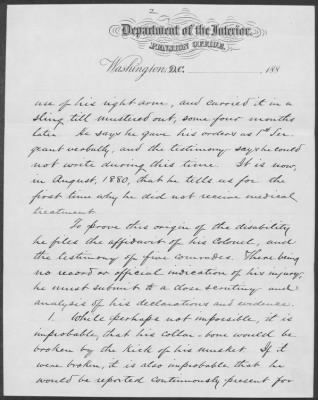 2
Department of the Interior,
PENSION OFFICE,
Washington, D.C. 188
use of his right arm, and carried it in a
sling till mustered out, some four months
later. He says he gave his orders as 1st Ser-
geant verbally, and the testimony says he could
not write during this time. It is now,
in August, 1880, that he tells us for the
first time why he did not receive medical
treatment.
To prove this origin of the disability
he files the affidavit of his Colonel, and
the testimony of five comrades. There being
no record or official indication of his injury,
he must submit to a close scrutiny and
analysis of his declarations and evidence.
1. While perhaps not impossible, it is
improbable, that his collar-bone would be
broken by the kick of his musket. If it
were broken, it is also improbable that he
would be reported continuously present for